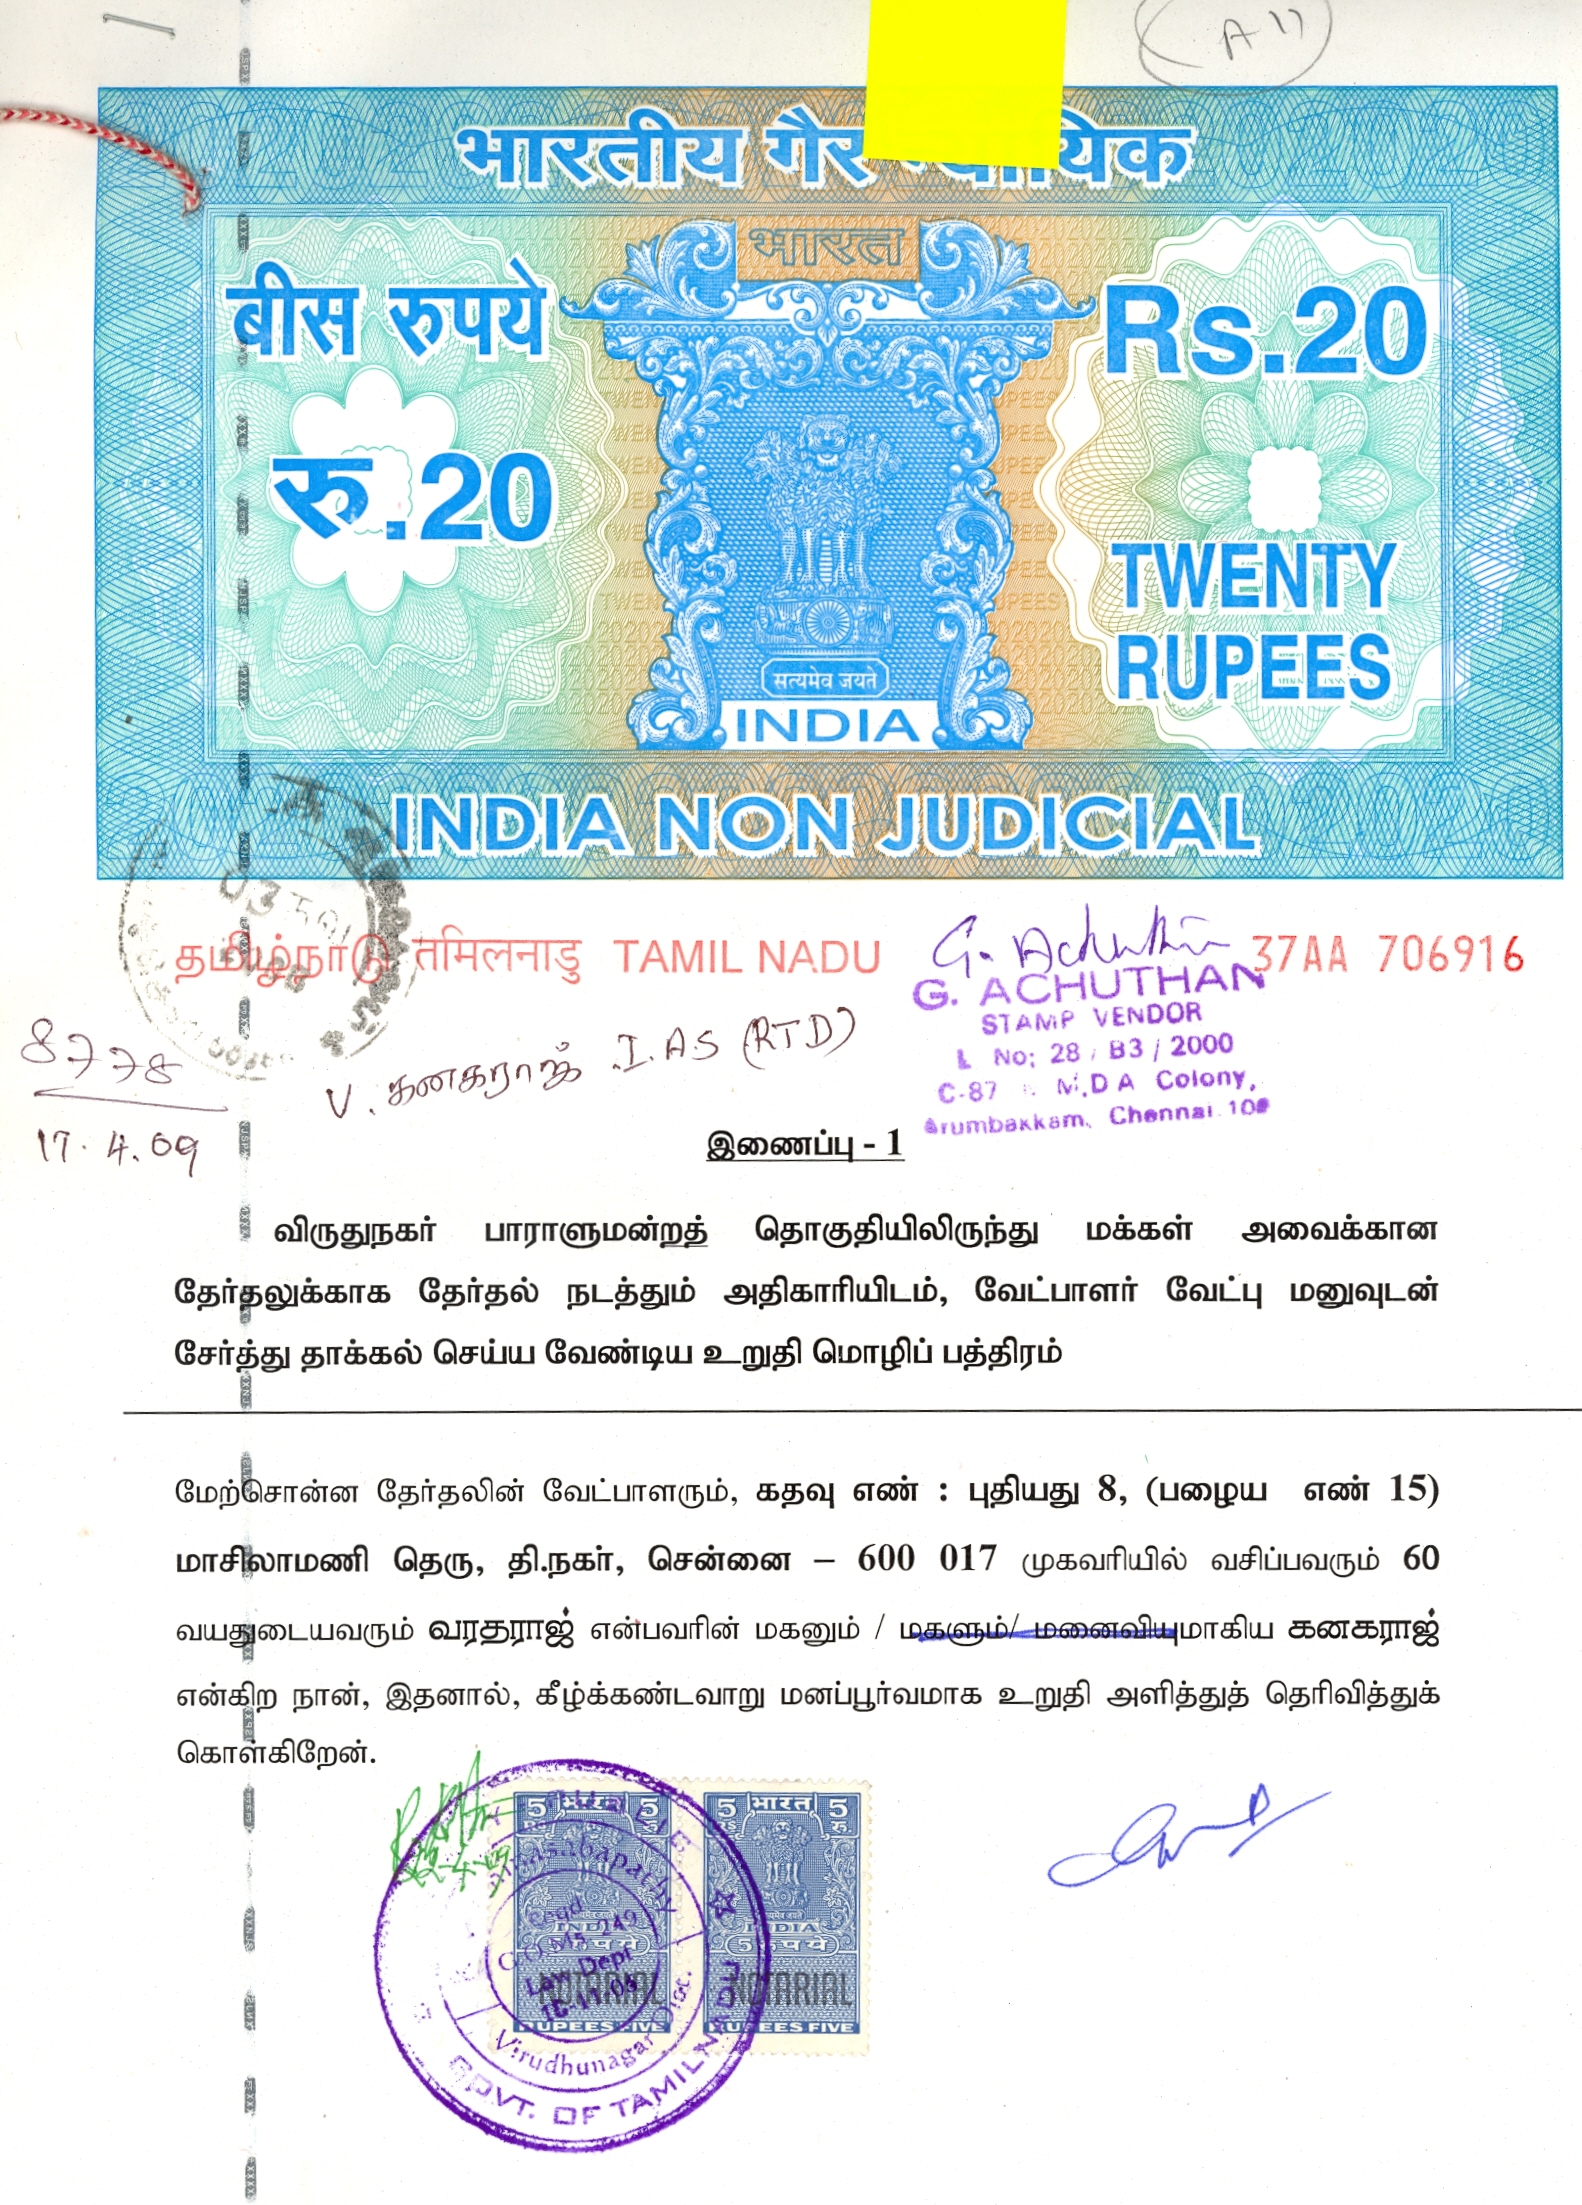 A 11
भारतीय गैर न्यायिक
भारत
बीस रुपये
Rs.20
रु.20
TWENTY
RUPEES
सत्यमेव जयते
INDIA
INDIA NON JUDICIAL
தமிழ்நாடு तमिलनाडु TAMIL NADU
37AA 706916
G. Achuthan
G. ACHUTHAN
STAMP VENDOR
L No; 28 / B3 / 2000
C-87 M.D A Colony,
Arumbakkam, Chennai.
8778
17.4.09
V. கனகராஜ் I.A.S (RTD)
இணைப்பு - 1
விருதுநகர் பாராளுமன்றத் தொகுதியிலிருந்து மக்கள் அவைக்கான
தேர்தலுக்காக தேர்தல் நடத்தும் அதிகாரியிடம், வேட்பாளர் வேட்பு மனுவுடன்
சேர்த்து தாக்கல் செய்ய வேண்டிய உறுதி மொழிப் பத்திரம்
மேற்சொன்ன தேர்தலின் வேட்பாளரும், கதவு எண் : புதியது 8, (பழைய எண் 15)
மாசிலாமணி தெரு, தி.நகர், சென்னை – 600 017 முகவரியில் வசிப்பவரும் 60
வயதுடையவரும் வரதராஜ் என்பவரின் மகனும் / மகளும்/ மனைவியுமாகிய கனகராஜ்
என்கிற நான், இதனால், கீழ்க்கண்டவாறு மனப்பூர்வமாக உறுதி அளித்துத் தெரிவித்துக்
கொள்கிறேன்.
5 भारत 5
5 भारत 5
INDIA
INDIA
5 रुपये
NOTARIAL
NOTARIAL
RUPEES FIVE
RUPEES FIVE
G.O.Ms 249
Law Dept
Virudhunagar Dist.
GOVT. OF TAMILNADU